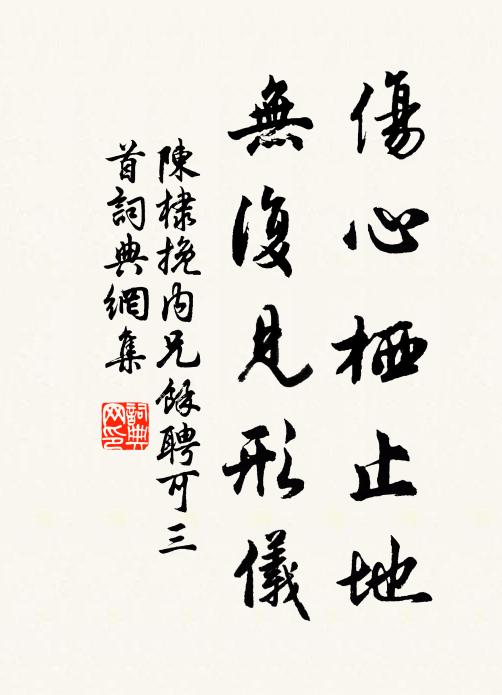 傷心栖止地
無復見形儀
陳棣挽内兄餘聘可三
首詞典網集
詞典
网印